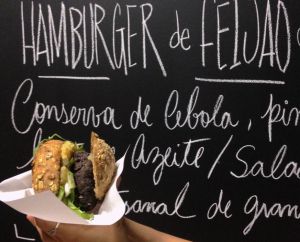 HAMBURGER de FEIJÃO
Conserva de Cebola, pin
/Azeite/Sala
sanal de gran